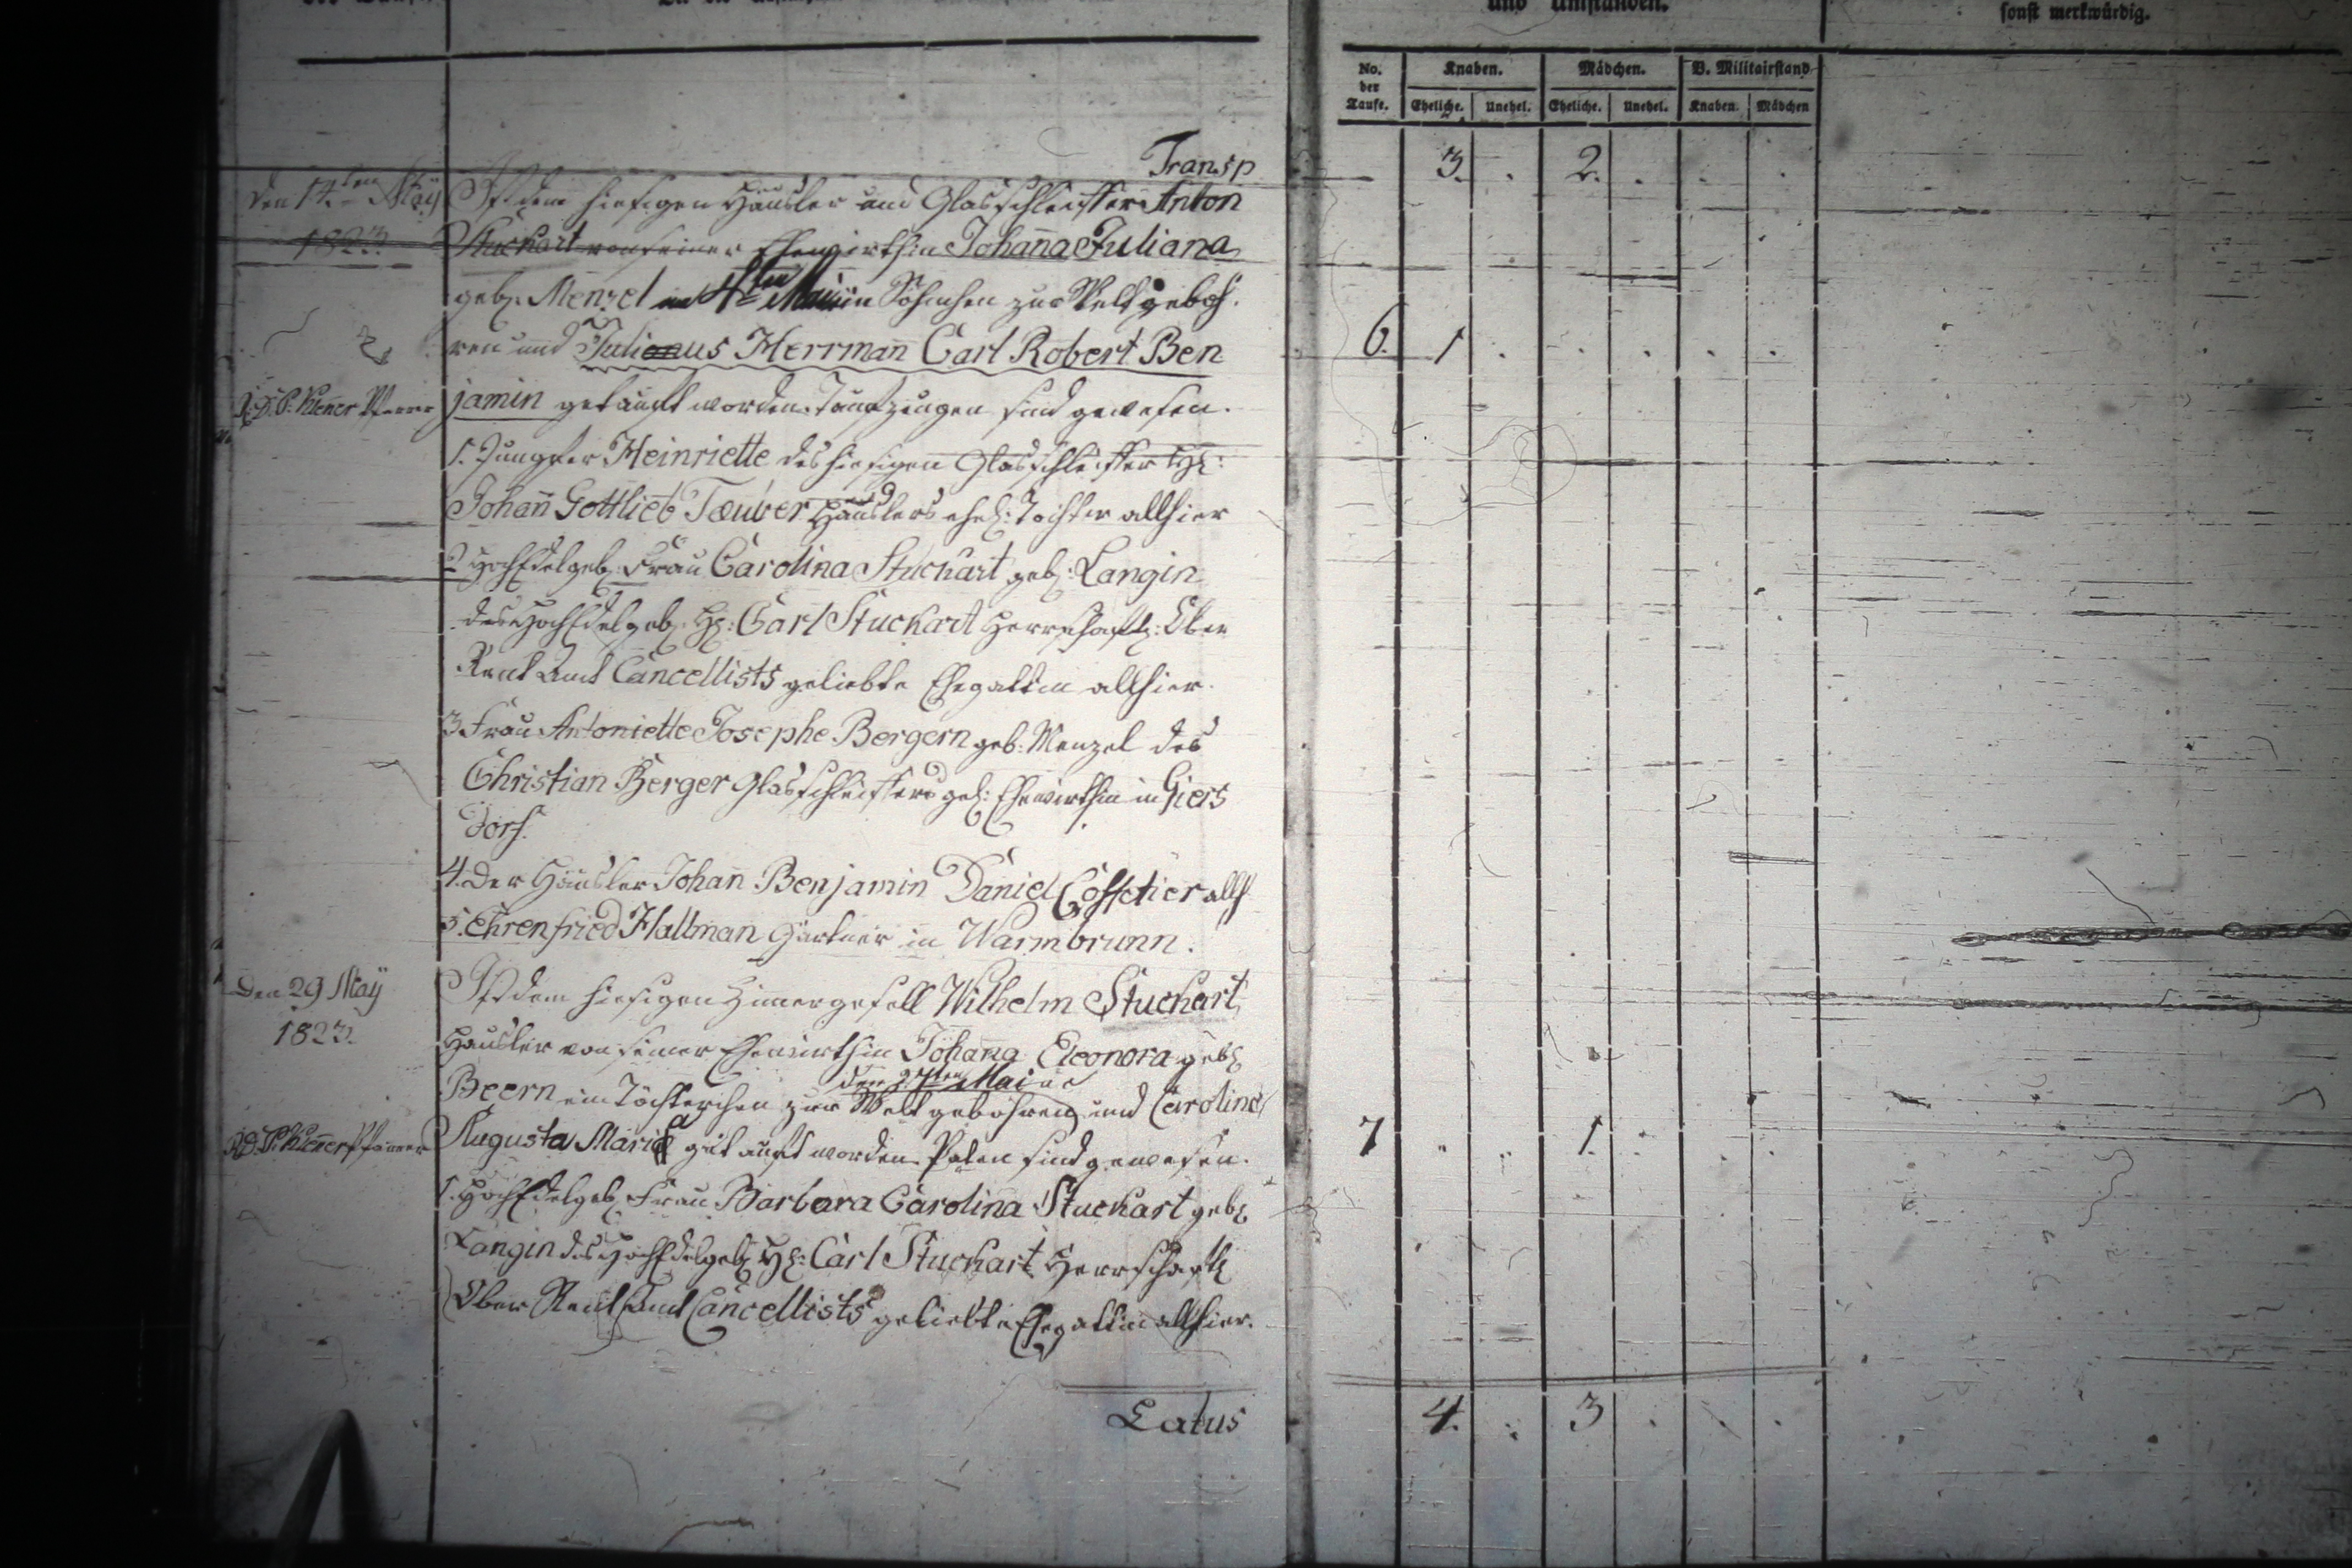 und Umständen.
sonst merkwürdig.
No. der Taufe. Knaben. Mädchen. V. Militairstand
Eheliche. Unehel. Eheliche. Unehel. Knaben. Mädchen
Transp 3. . 2. . . .
den 14.ten May
1823.
Ist dem hiesigen Häusler und Glasschleiffer Anton
Stuckart von seiner Ehewirthin Johan̄a Juliana
geb. Menzel ein Söhnchen zur Welt geboh-
ren und Julius Herrman̄ Carl Robert Ben
6. 1 . . . . .
jamin getauft worden. Taufzeugen sind gewesen.
1. Jungfer Heinriette des hiesigen Glasschleiffer
Johan̄ Gottlieb Täuber Häuslers ehel: Tochter allhier
2 HochEdelgeb: Frau Carolina Stuckart geb: Langin
des HochEdelgeb: H: Carl Stuckart Herrschaftl: Ober
Rent Amt Cancellists geliebte Ehegattin allhier.
3 Frau Antoniette Josephe Bergern geb: Menzel des
Christian Berger Glasschleiffers Ehewirthin in Giers
dorf.
4. Der Häusler Johan̄ Benjamin Daniel allh
5. Ehrenfried Hallman Gärtner in Warmbrunn.
Den 29 May
1823.
Ist dem hiesigen Zimmergesell Wilhelm Stuckart
Häusler von seiner Ehewirthin Johan̄a Eleonora geb
den 27ten Mai
Beern ein Töchterchen zur Welt gebohren und Carolina
Augusta Maria getauft worden. Paten sind gewesen.
7 . . 1. . . .
1. HochEdelgeb Frau Barbara Carolina Stuckart geb
Langin des HochEdelgeb H: Carl Stuckart Herrschaftl
Ober Rent Amt Cancellists geliebte Ehegattin allhier.
Latus 4. . 3 . . .